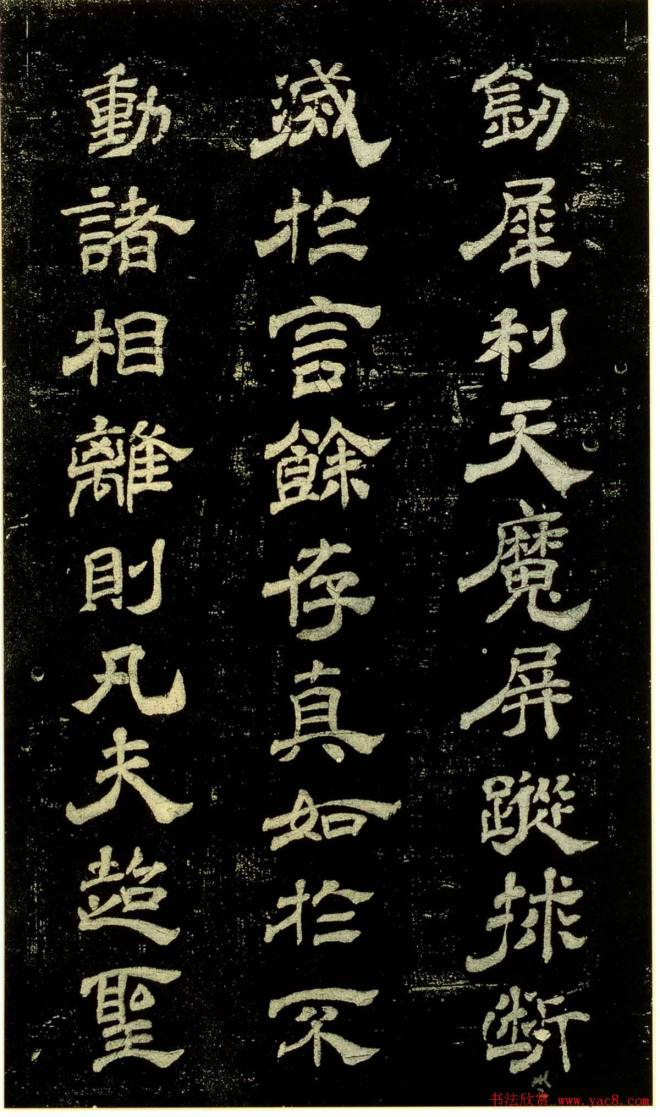 劒犀利天魔屏蹤捄斷
滅於言餘存真如於不
動諸相離則凡夫超聖
书法欣赏 www.yac8.com